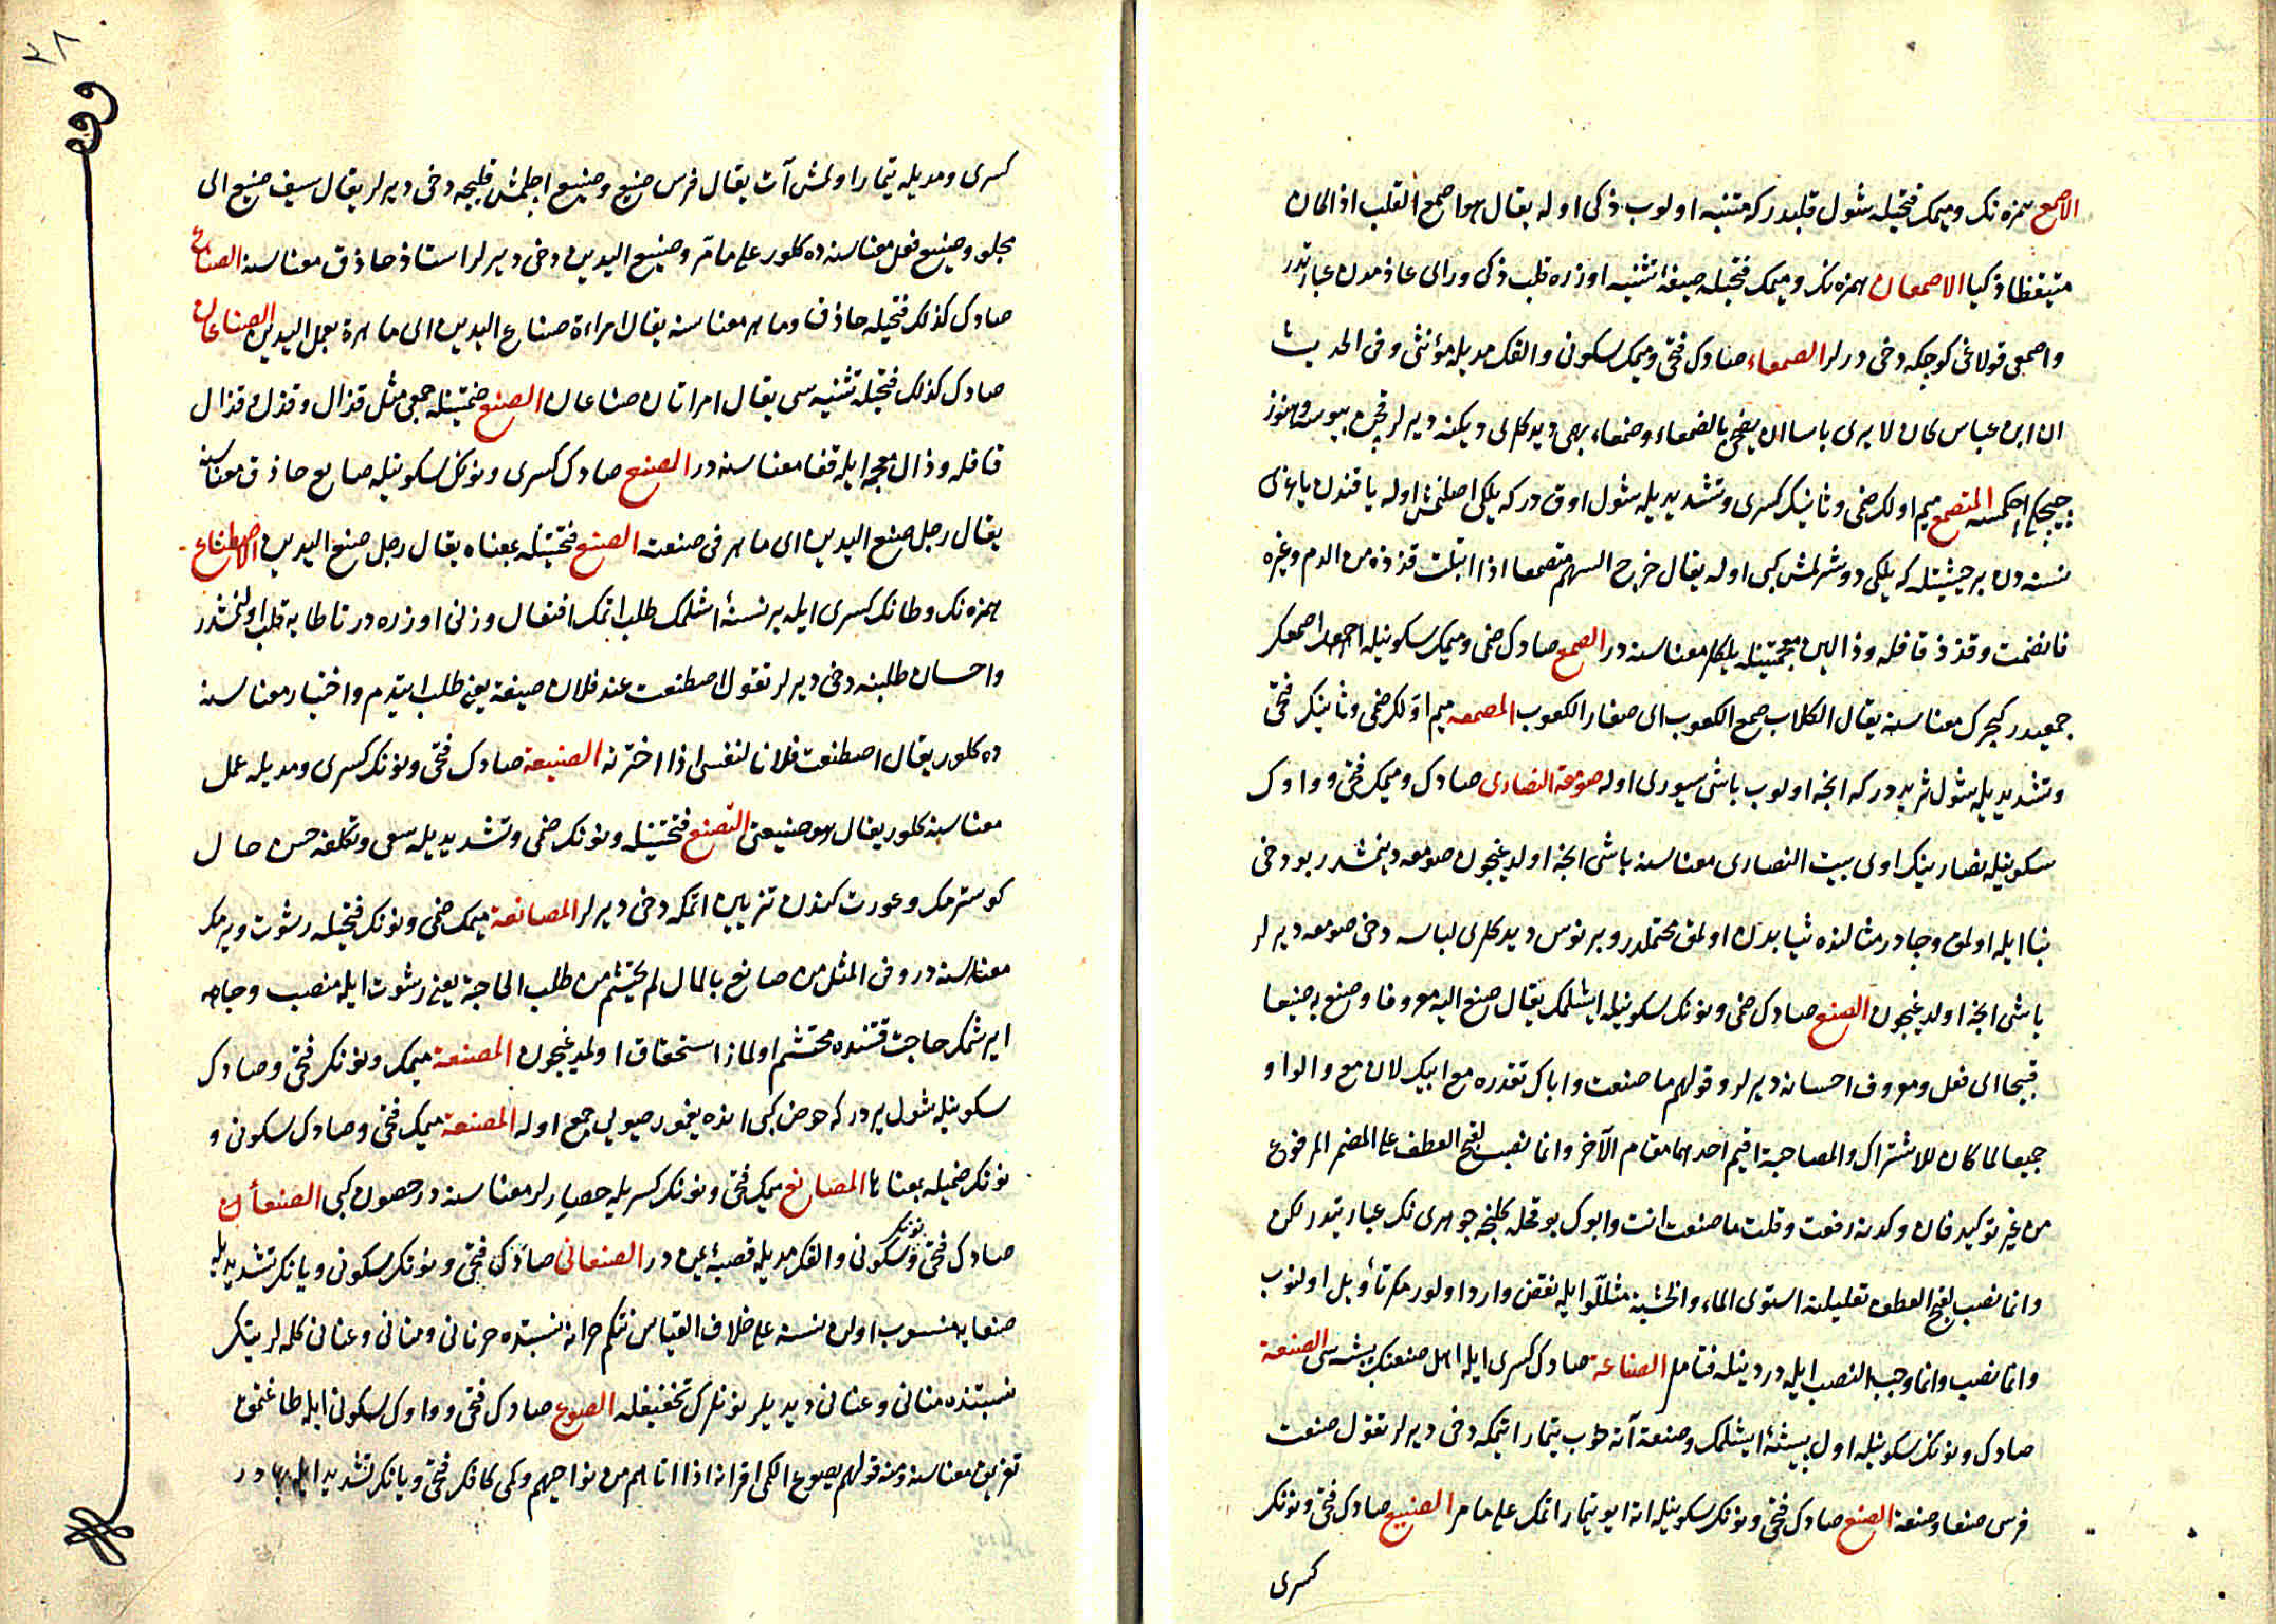 الاصمع همزه نك وميمك فتحيله شول قلبدر كه متنبه اولوب ذكى اوله يقال هو اصمع القلب اذا كان
متيقظا ذكيا الاصمعان همزه نك وميمك فتحيله صيغهٔ تثنيه اوزره قلب ذكى وراى عازمدن عبارتدر
واصمعى قولاغى كوچكه دخى ديرلر الصمعاء صادك فتحى وميمك سكونى والفك مديله مؤنثى وفى الحديث
ان ابن عباس كان لا يرى باسا ان يضحى بالصمعاء وصمعاء بهمى ديدكلرى ديكنه ديرلر قچن بيوسه وهنوز
چيچكى آچلمسه المتصمع ميم اولك ضمى وثانينك كسرى وتشديديله شول اوقدر كه يلكى اصلنمش اوله ياقندن ياغيرى
نسنه دن بر حيثيتله كه يلكى دوشرلمش كبى اوله يقال خرج السهم متصمعا اذا ابتلت قذذه من الدم وغيره
فانضمت وقذذ قافله وذالين معجمتينله يلكلر معناسنه در الصمع صادك ضمى وميمك سكونيله اصمعك
جمعيدر كچرك معناسنه يقال الكلاب صمع الكعوب اى صغار الكعوب المصمعه ميم اولك ضمى وثانينك فتحى
وتشديديله شول ثريددر كه اينجه اولوب باشى سيورى اوله صومعة النصارى صادك وميمك فتحى وواوك
سكونيله نصارينك اوى بيت النصارى معناسنه باشى اينجه اولديغيچون صومعه دينمشدر بو دخى
بنا ايله اولمق وچادر مثالنده ثيابدن اولمق محتملدر وبرنوس ديدكلرى لباسه دخى صومعه ديرلر
باشى اينجه اولديغيچون الصنع صادك ضمى ونونك سكونيله ايشلمك يقال صنع اليه معروفا وصنع به صنيعا
قبيحا اى فعل ومعروف احسانه ديرلر وقولهم ما صنعت واباك تقديره مع ابيك لان مع والواو
جميعا لما كان للاشتراك والمصاحبة اقيم احدهما مقام الآخر وانما نصب لقبح العطف على المضمر المرفوع
من غير توكيد فان وكدته رفعت وقلت ما صنعت انت وابوك بو محله كلنجه جوهرى نك عبارتيدر لكن
وانما نصب لقبح العطف تعليلنه استوى الماء والخشبة مثللو ايله نقض وارد اولور مكر تأويل اولنوب
وانما نصب وانما وجب النصب ايله در دينله فتامل الصناعة صادك كسرى ايله اهل صنعتك پيشه سى الصنعة
صادك ونونك سكونيله اول پيشه‌ٔ ايشلمك وصنعة آته خوب تيمار ايتمكه دخى ديرلر تقول صنعت
فرسى صنعا وصنعة الصنع صادك فتحى ونونك سكونيله اته ايو تيمار اتمك على ما مر الصنيع صادك فتحى ونونك
كسرى
٣٨
كسرى ومديله تيمار اولنمش آت يقال فرس صنيع وصنيع اچلمش قليجه دخى ديرلر يقال سيف صنيع اى
مجلو وصنيع فعل معناسنه ده كلور على ما مر وصنيع اليدين دخى ديرلر استاذ حاذق معناسنه الصناع
صادك كذلك فتحيله حاذق وماهر معناسنه يقال امراة صناع اليدين اى ماهرة بعمل اليدين الصناعان
صادك كذلك فتحيله تثنيه سى يقال امراتان صناعان الصنع ضمتينله جمعى مثل قذال وقذل قذال
قافله وذال معجمه ايله قفا معناسنه در الصنع صادك كسرى ونونك سكونيله صانع حاذق معناسنه
يقال رجل صنع اليدين اى ماهر فى صنعت الصنع فتحتينله بمعناه يقال رجل صنع اليدين الاصطناع
همزه نك وطانك كسرى ايله بر نسنهٔ اشلمك طلب اتمك افتعال وزنى اوزره در تا طايه قلب اولنمشدر
واحسان طلبنه دخى ديرلر تقول اصطنعت عند فلان صنيعة يعنى طلب ايتدم واختيار معناسنه
ده كلور يقال اصطنعت فلانا لنفسى اذا اخترته الصنيعة صادك فتحى ونونك كسرى ومديله عمل
معناسنه كلور يقال هو صنيعتى التصنع فتحتينله ونونك ضمى وتشديديله سعى وتكلفه حسن حال
كوسترمك وعورت كندن تزيين اتمكه دخى ديرلر المصانعة ميمك ضمى ونونك فتحيله رشوت ويرمك
معناسنه در وفى المثل من صانع بالمال لم يحتشم من طلب الحاجة يعنى رشوت ايله منصب وجاهه
ايرشمك حاجت قتنده محتشم اولماز استحقاق اولمديغيچون المصنعة ميمك ونونك فتحى وصادك
سكونيله شول يردر كه حوض كبى انده يغمور صيويى جمع اوله المصنعة ميمك فتحى وصادك سكونى و
نونك ضميله بمعناها المصانع ميمك فتحى ونونك كسريله حصارلر معناسنه در حصون كبى الصنعآن
صادك فتحى ونونك سكونى والفك مديله قصبهٔ يمن در الصنعانى صادك فتحى ونونك سكونى ويانك تشديديله
صنعايه منسوب اولن نسنه على خلاف القياس نتكم حرانه نسبتده حرنانى ومنانى وعنانى كلمه لرينك
نسبتنده منانى وعنانى ديديلر نونلرك تخفيفله الصوع صادك فتحى وواوك سكونى ايله طاغتمق
تفريق معناسنه ومنه قولهم يصوع الكمى اقرانه اذا اتاهم من نواحيهم وكمى كافك فتحى ويانك تشديدى ايله بهادر